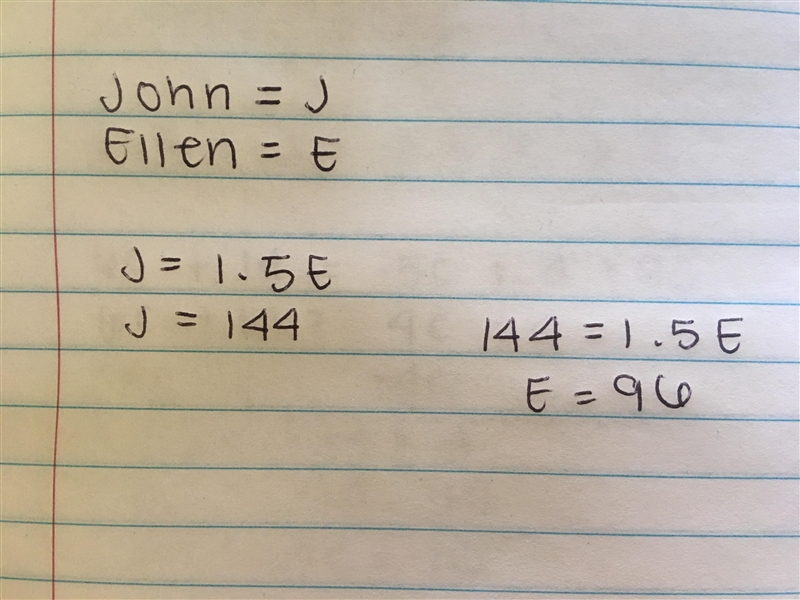 John = J
Ellen = E
J = 1.5E
J = 144
144 = 1.5E
E = 96